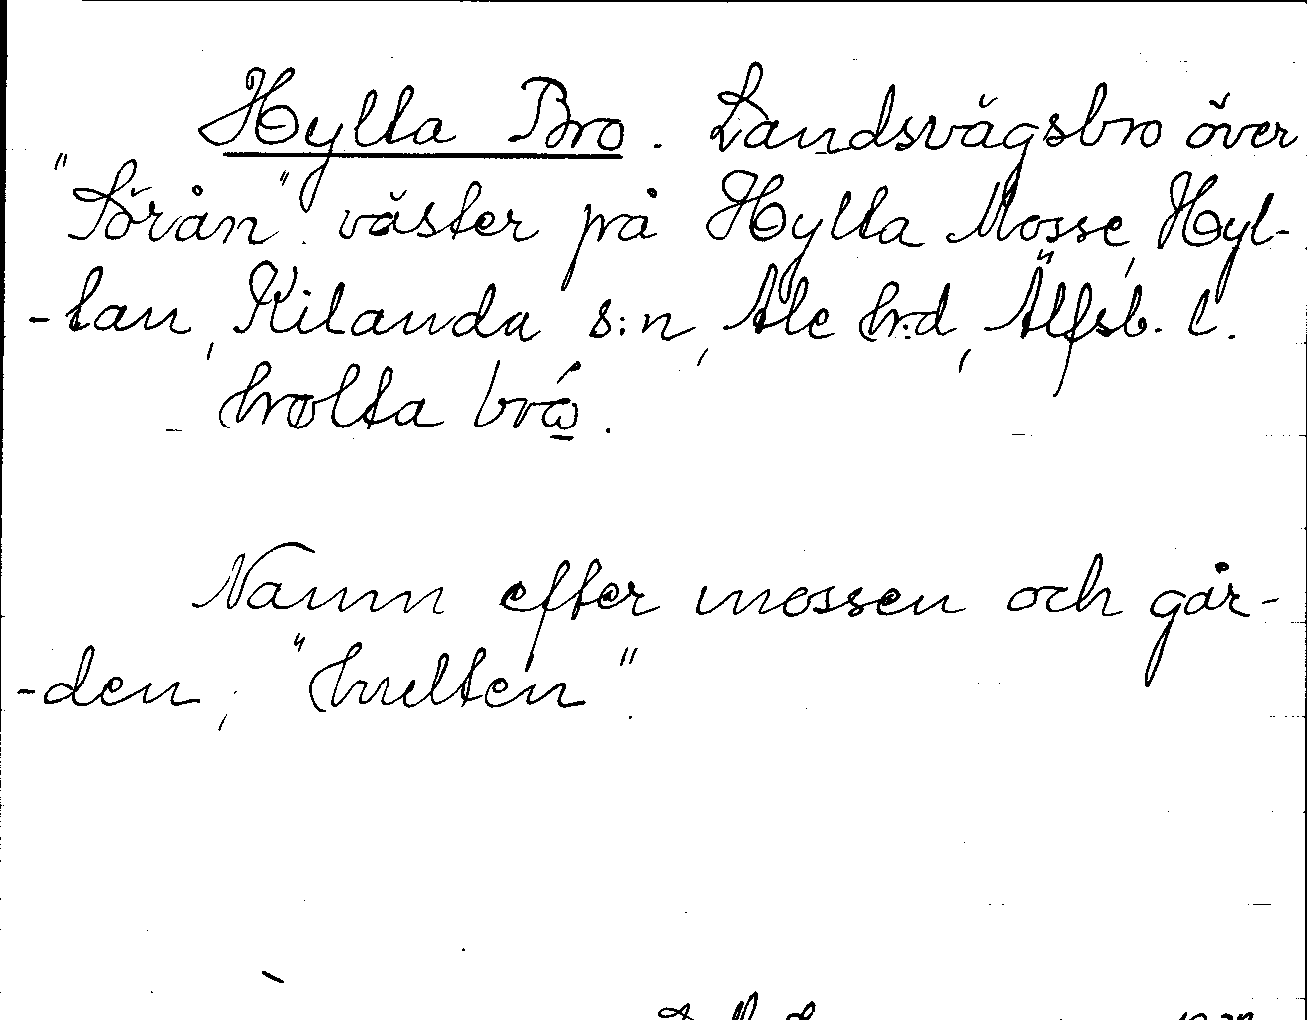 Hylta Bro. Landsvägsbro över
"Sörån" väster på Hylta Mosse, Hyl-
-tan, Kilanda s:n, Ale h:d, Älfsb. l.
hvolta brå.
Namn efter mossen och går-
-den, "hulten".